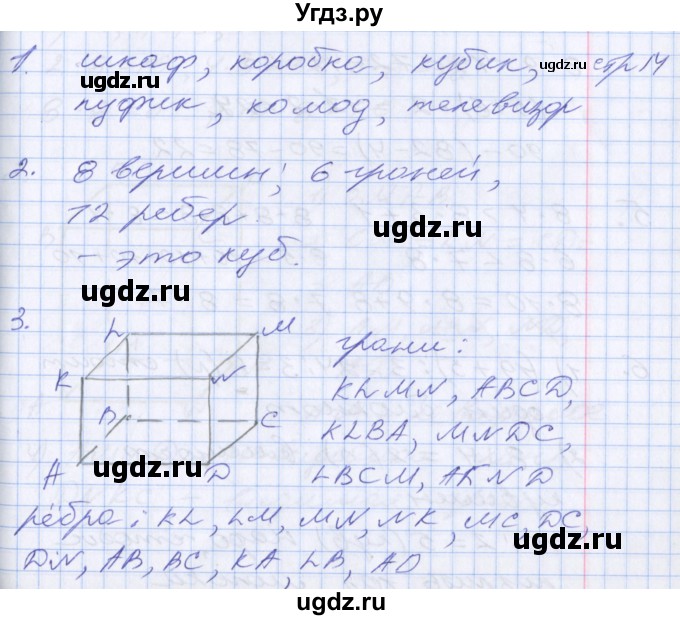 Угдз.ру
1. шкаф, коробка, кубик, стр 14
ugdz.ru
ugdz.ru
пуфик, комод, телевизор
2. 8 вершин; 6 граней,
12 ребер
ugdz.ru
- это куб.
ugdz.ru
3.
L M
K N
B C
A D
грани:
KLMN, ABCD,
KLBA, MNDC,
ugdz.ru
ugdz.ru
LBCM, AKND
рёбра: KL, LM, MN, NK, MC, DC,
ugdz.ru
DN, AB, BC, KA, LB, AD
ugdz.ru